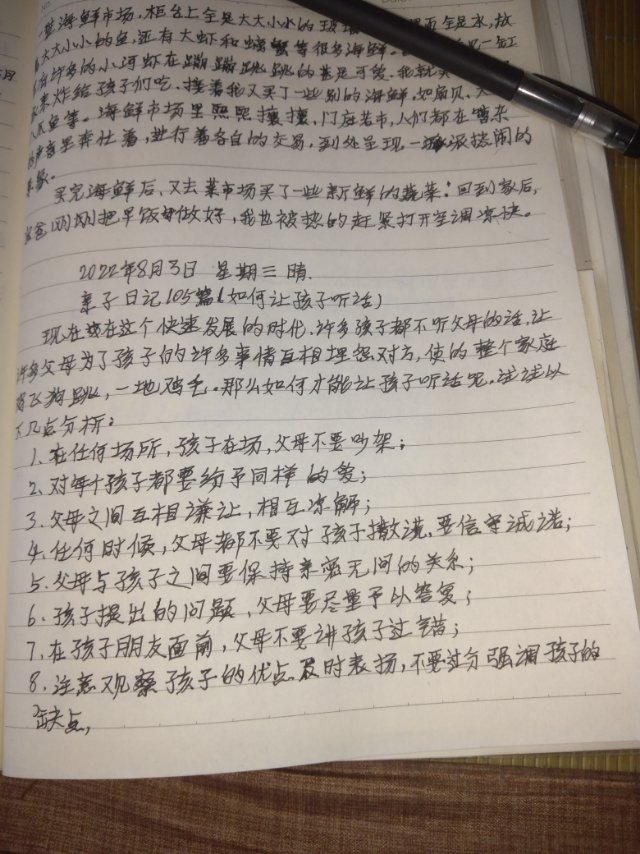 海鲜市场,柜台上全是大大小小的玻璃
面全是水,放
大大小小的鱼,还有大虾和螃蟹等很多海鲜。
一缸
有许多的小河虾在蹦蹦跳跳的甚是可爱,我就买
来炸给孩子们吃,接着我又买了一些别的海鲜,如扇贝、
鱼等。海鲜市场里熙熙攘攘,门庭若市,人们都在嘈杂
声音里奔壮着,进行着各自的交易,到处呈现一派热闹的
景象。
买完海鲜后,又去菜市场买了一些新鲜的蔬菜;回到家后,
爸刚刚把早饭做好,我也被热的赶紧打开空调凉快。
2022年8月3日 星期三 晴.
亲子日记105篇(如何让孩子听话)
现在在这个快速发展的时代,许多孩子都不听父母的话,让
许多父母为了孩子的许多事情互相埋怨对方,使的整个家庭
飞狗跳,一地鸡毛。那么如何才能让孩子听话呢。试试以
下几点分析:
1、在任何场所,孩子在场,父母不要吵架;
2、对每个孩子都要给予同样的爱;
3、父母之间互相谦让,相互谅解;
4、任何时候,父母都不要对孩子撒谎,要信守诚诺;
5、父母与孩子之间要保持亲密无间的关系;
6、孩子提出的问题,父母要尽量予以答复;
7、在孩子朋友面前,父母不要讲孩子过错;
8、注意观察孩子的优点及时表扬,不要过分强调孩子的
缺点,